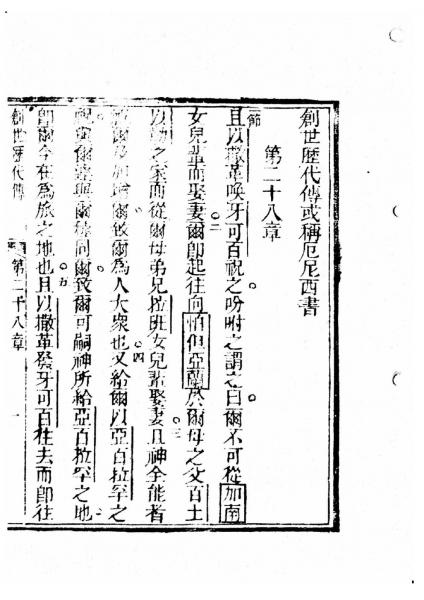 創世歷代傳或稱厄尼西書
第二十八章
一節且以撒革喚牙可百祝之吩咐之謂之曰爾不可從加南
女兒輩而娶妻二爾即起往向怕但亞蘭於爾母之父百土
以勒之家而從爾母弟兄拉班女兒輩娶妻三且神全能者
爾及加增爾致爾為人大衆也四又給爾以亞百拉罕之
祝與爾與爾種同爾致爾可嗣神所給亞百拉罕之地
即爾今在為旅之地也五且以撒革發牙可百往去而即往
創世歷代傳 第二十八章 一